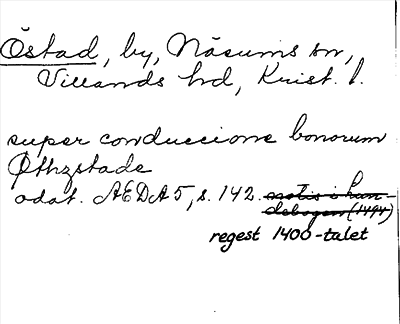 Östad, by, Näsums sn,
Villands hd, Krist. l.
super conduccione bonorum
Øthzstade
odat. AEDA 5, s. 142. notis i kun-
debogen (1494)
regest 1400-talet